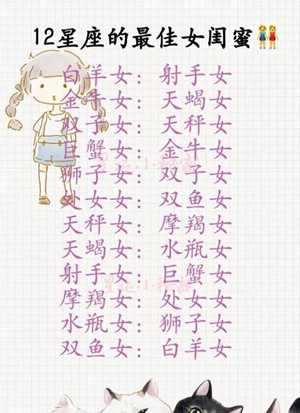 12星座的最佳女闺蜜👭
白羊女：射手女
金牛女：天蝎女
双子女：天秤女
巨蟹女：金牛女
狮子女：双子女
处女女：双鱼女
天秤女：摩羯女
天蝎女：水瓶女
射手女：巨蟹女
摩羯女：处女女
水瓶女：狮子女
双鱼女：白羊女